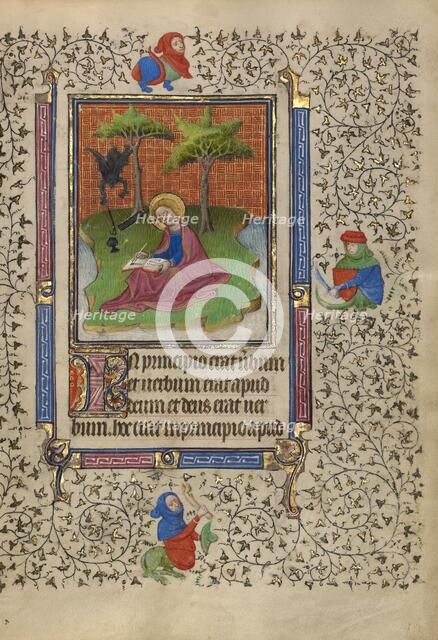 IN principio erat verbum
et verbum erat apud
deum et deus erat ver
bum. hoc erat in principio apud
Heritage
Heritage
Heritage
Heritage
Heritage
Heritage